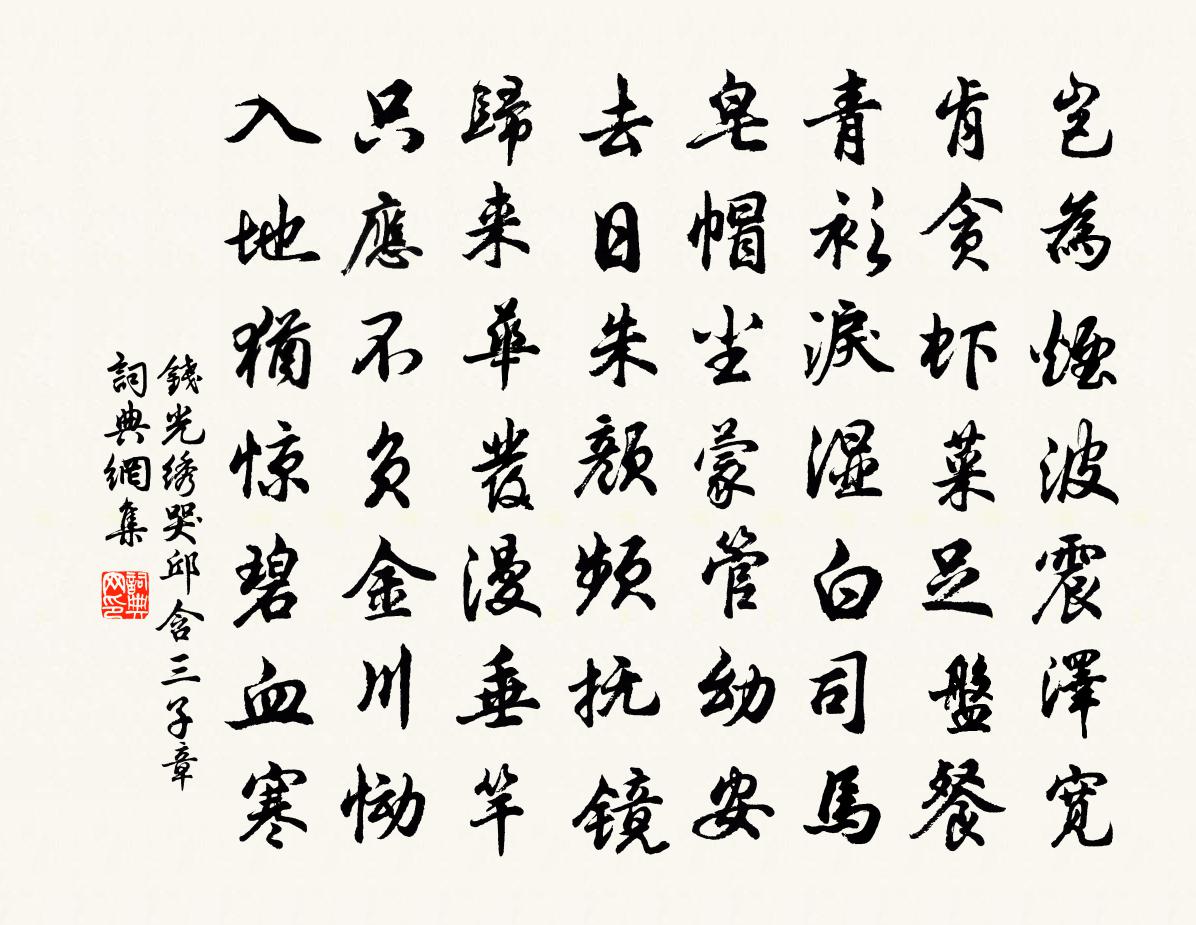 豈為煙波震澤寬
肯貪虾菜足盤餐
青衫淚濕白司馬
皂帽坐蒙管幼安
去日朱颜頻抚鏡
歸来華發漫垂竿
只應不負金川恸
入地猶惊碧血寒
錢光绣哭邱含三子章
詞典網集
詞典网印